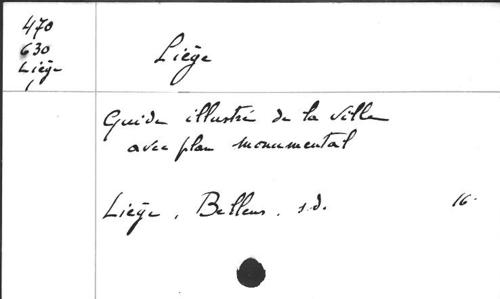 470
630
Liège
1
Liège
Guide illustré de la ville
avec plan monumental
Liège, Bellens, s.d. 16°